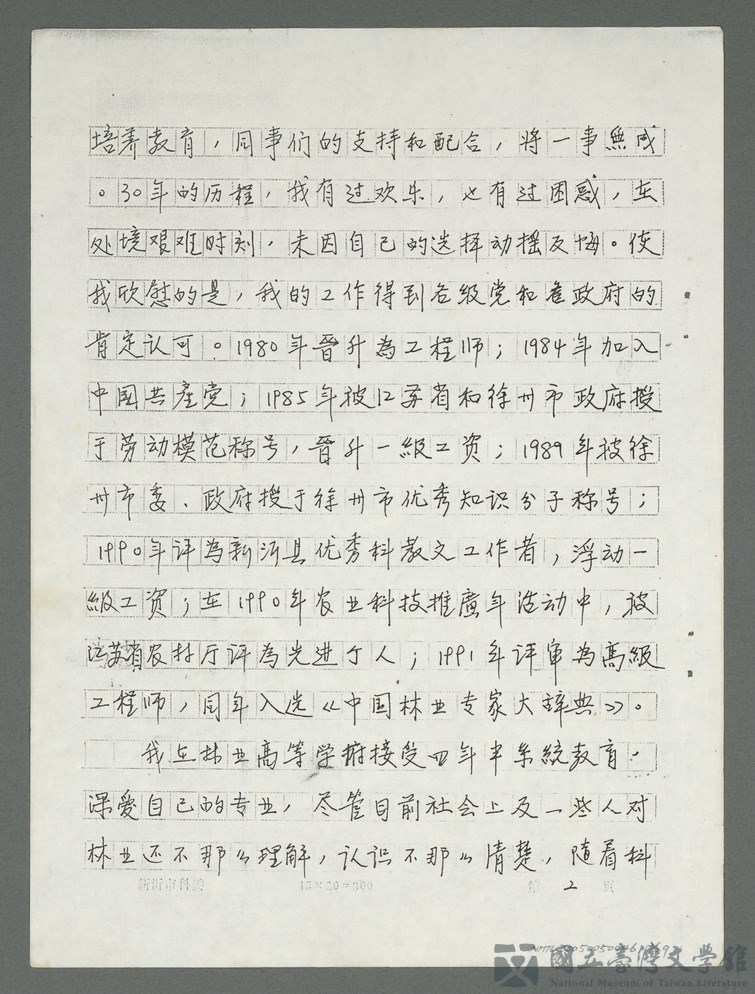 培养教育，同事们的支持和配合，将一事無成
。30年的历程，我有过欢乐，也有过困惑，在
处境艰难时刻，未因自己的选择动摇反悔。使
我欣慰的是，我的工作得到各级党和县政府的
肯定认可。1980年晉升為工程师；1984年加入
中国共産党；1985年被江苏省和徐州市政府授
于劳动模范称号，晉升一級工资；1989年被徐
州市委、政府授于徐州市优秀知识分子称号；
1990年评為新沂县优秀科教文工作者，浮动一
級工资；在1990年农业科技推廣年活动中，被
江苏省农林厅评為先进个人；1991年评审為高級
工程师，同年入选《中国林业专家大辞典》。
我在林业高等学府接受四年半系統教育，
深爱自己的专业，尽管目前社会上及一些人对
林业还不那么理解，认识不那么清楚，随着科
15×20=300
第 2 页
國立臺灣文學館
National Museum of Taiwan Literature